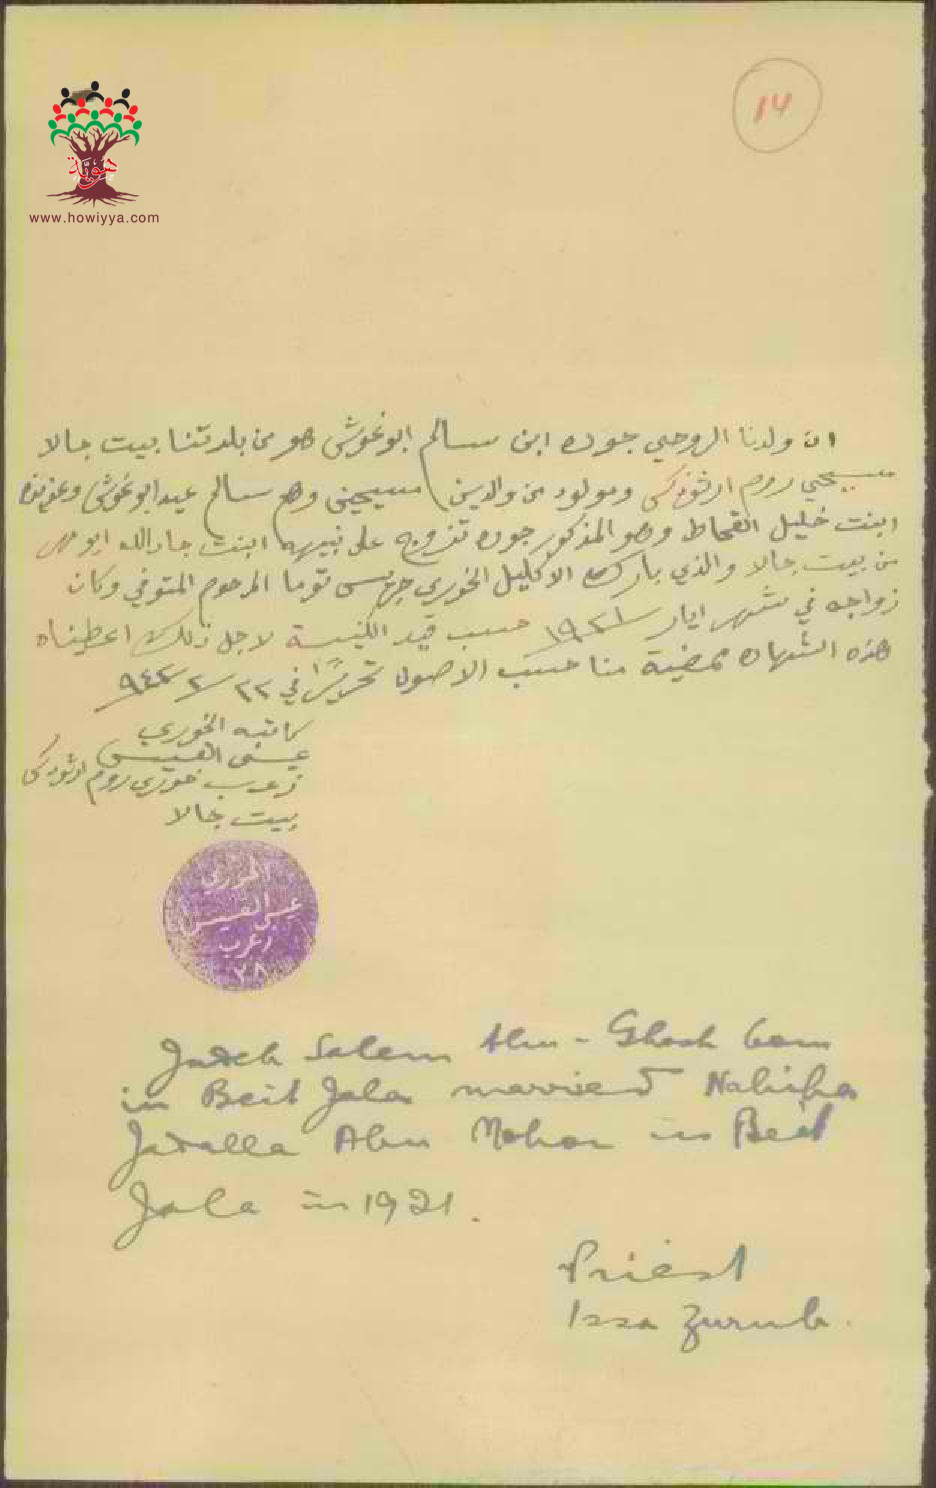 14
هوية
www.howiyya.com
ان ولدنا الروحي جوده ابن سالم ابو غوش هو من بلدتنا بيت جالا
مسيحي روم ارثوذكسي ومولود من والدين مسيحيين وهم سالم عيد ابو غوش وعزيزه
ابنت خليل القحاط وهو المذكور جوده تزوج على نبيهه ابنت جادالله ابو
من بيت جالا والذي بارك الاكليل الخوري جريس توما المرحوم المتوفي وكان
زواجه في شهر ايار ١٩٢١ حسب قيد الكنيسة لاجل ذلك اعطيناه
هذه الشهاده ممضية منا حسب الاصول تحريرًا في ٢٢ / ٢ / ٩٤٢
كاتبه الخوري
عيسى القسيس
زعرب خوري روم ارثوذكسي
بيت جالا
الخوري
عيسى القسيس
زعرب
٢٨
Judeh Salem Abu-Ghosh born
in Beit Jala married Nabiha
Jadalla Abu Mohor in Beit
Jala in 1921.
Priest
Issa Zurub.